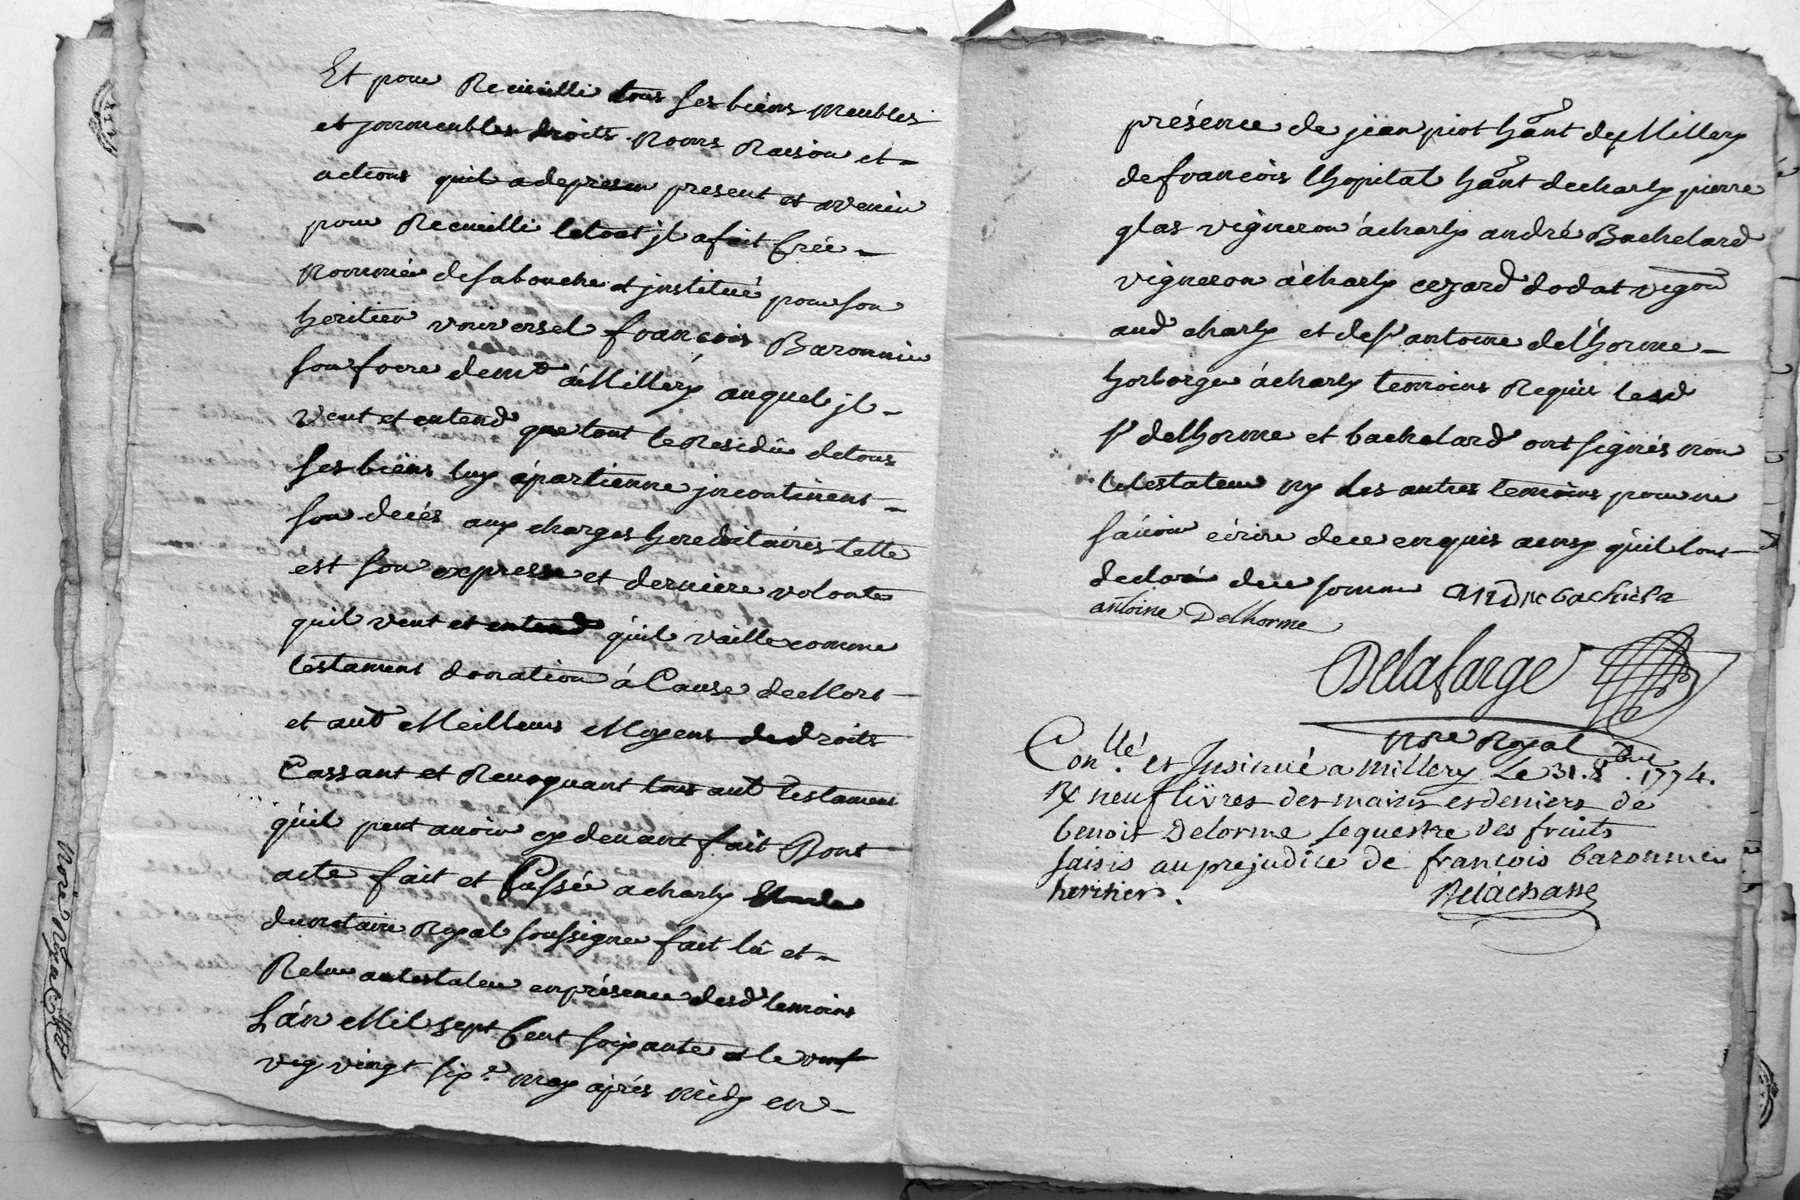 Et pour Recueilli tous ses biens meubles
et jmmeubles droits Noms Raison et
actions quil a depresen present et avenir
pour Recueilli letout jl afait Crée
Nommé desabouche et jnstitué pour son
heritier vniversel francois Baronnier
son frere demt à Millery auquel jl
veut et entend que tout le Residû detous
ses biens luy ápartienne jncontinent
son decés aux charges hereditaires telle
est son expresse et derniere volonte
quil veut et entend qúil vaille comme
testament donation á Cause de Mort
et autt Meilleurs Moyens de droits
Cassant et Revoquant tous autt testament
qúil peut avoir cy devant fait Dont
acte fait et Passée a charly Etude
du notaire Royal soussigne fait lû et
Relu autestateur enprésence desdt temoins
L'án Mil sept Cent soixante et le
vig vingt six.e may áprés midy en
présence de jean piot hânt de Millery
de francois lhopital hânt decharly pierre
glas vigneron ácharly andré Bachelard
vigneron ácharly cezard dodat vigon
aud charly et desr antoine delhorme
horloger ácharly temoins Requis lesd
sr delhorme et bachelard ont signés non
letestateur ny les autres temoins pour ne
sávoir écrire de ce enquis ainsy qúil lont
declaré dece somme andre bachela
antoine Delhorme
Delafarge
Nore Royal
Con.llé et Insinué a Millery Le 31. 8bre. 1774.
R neuf livres des mains et deniers de
benoit Delorme sequestre des fruits
saisis au prejudice de francois baronnier
heritier.
Delachasse